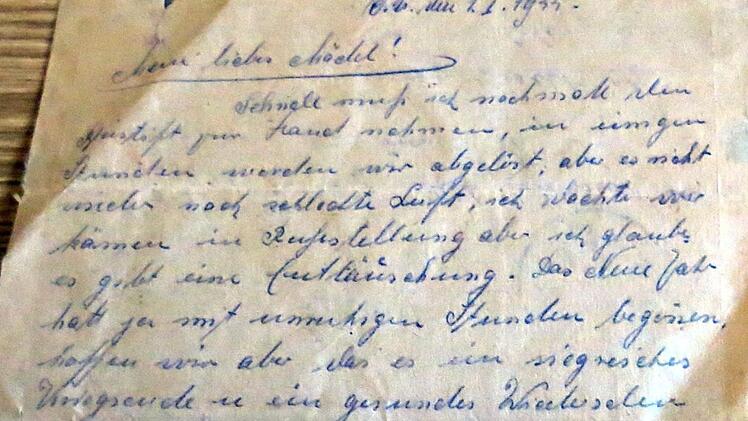 O.U. den 1.I.1944.
Mein liebes Mädel!
Schnell muß ich nochmals den
Bleistift zur Hand nehmen, in einigen
Stunden werden wir abgelöst, aber es riecht
wieder nach schlechte Luft, ich dachte wir
kämen in Ruhestellung aber ich glaube
es gibt eine Enttäuschung. Das Neue Jahr
hatt ja mit unruhigen Stunden begonnen,
hoffen wir aber das es ein siegreiches
Kriegsende u ein gesundes Wiedersehen